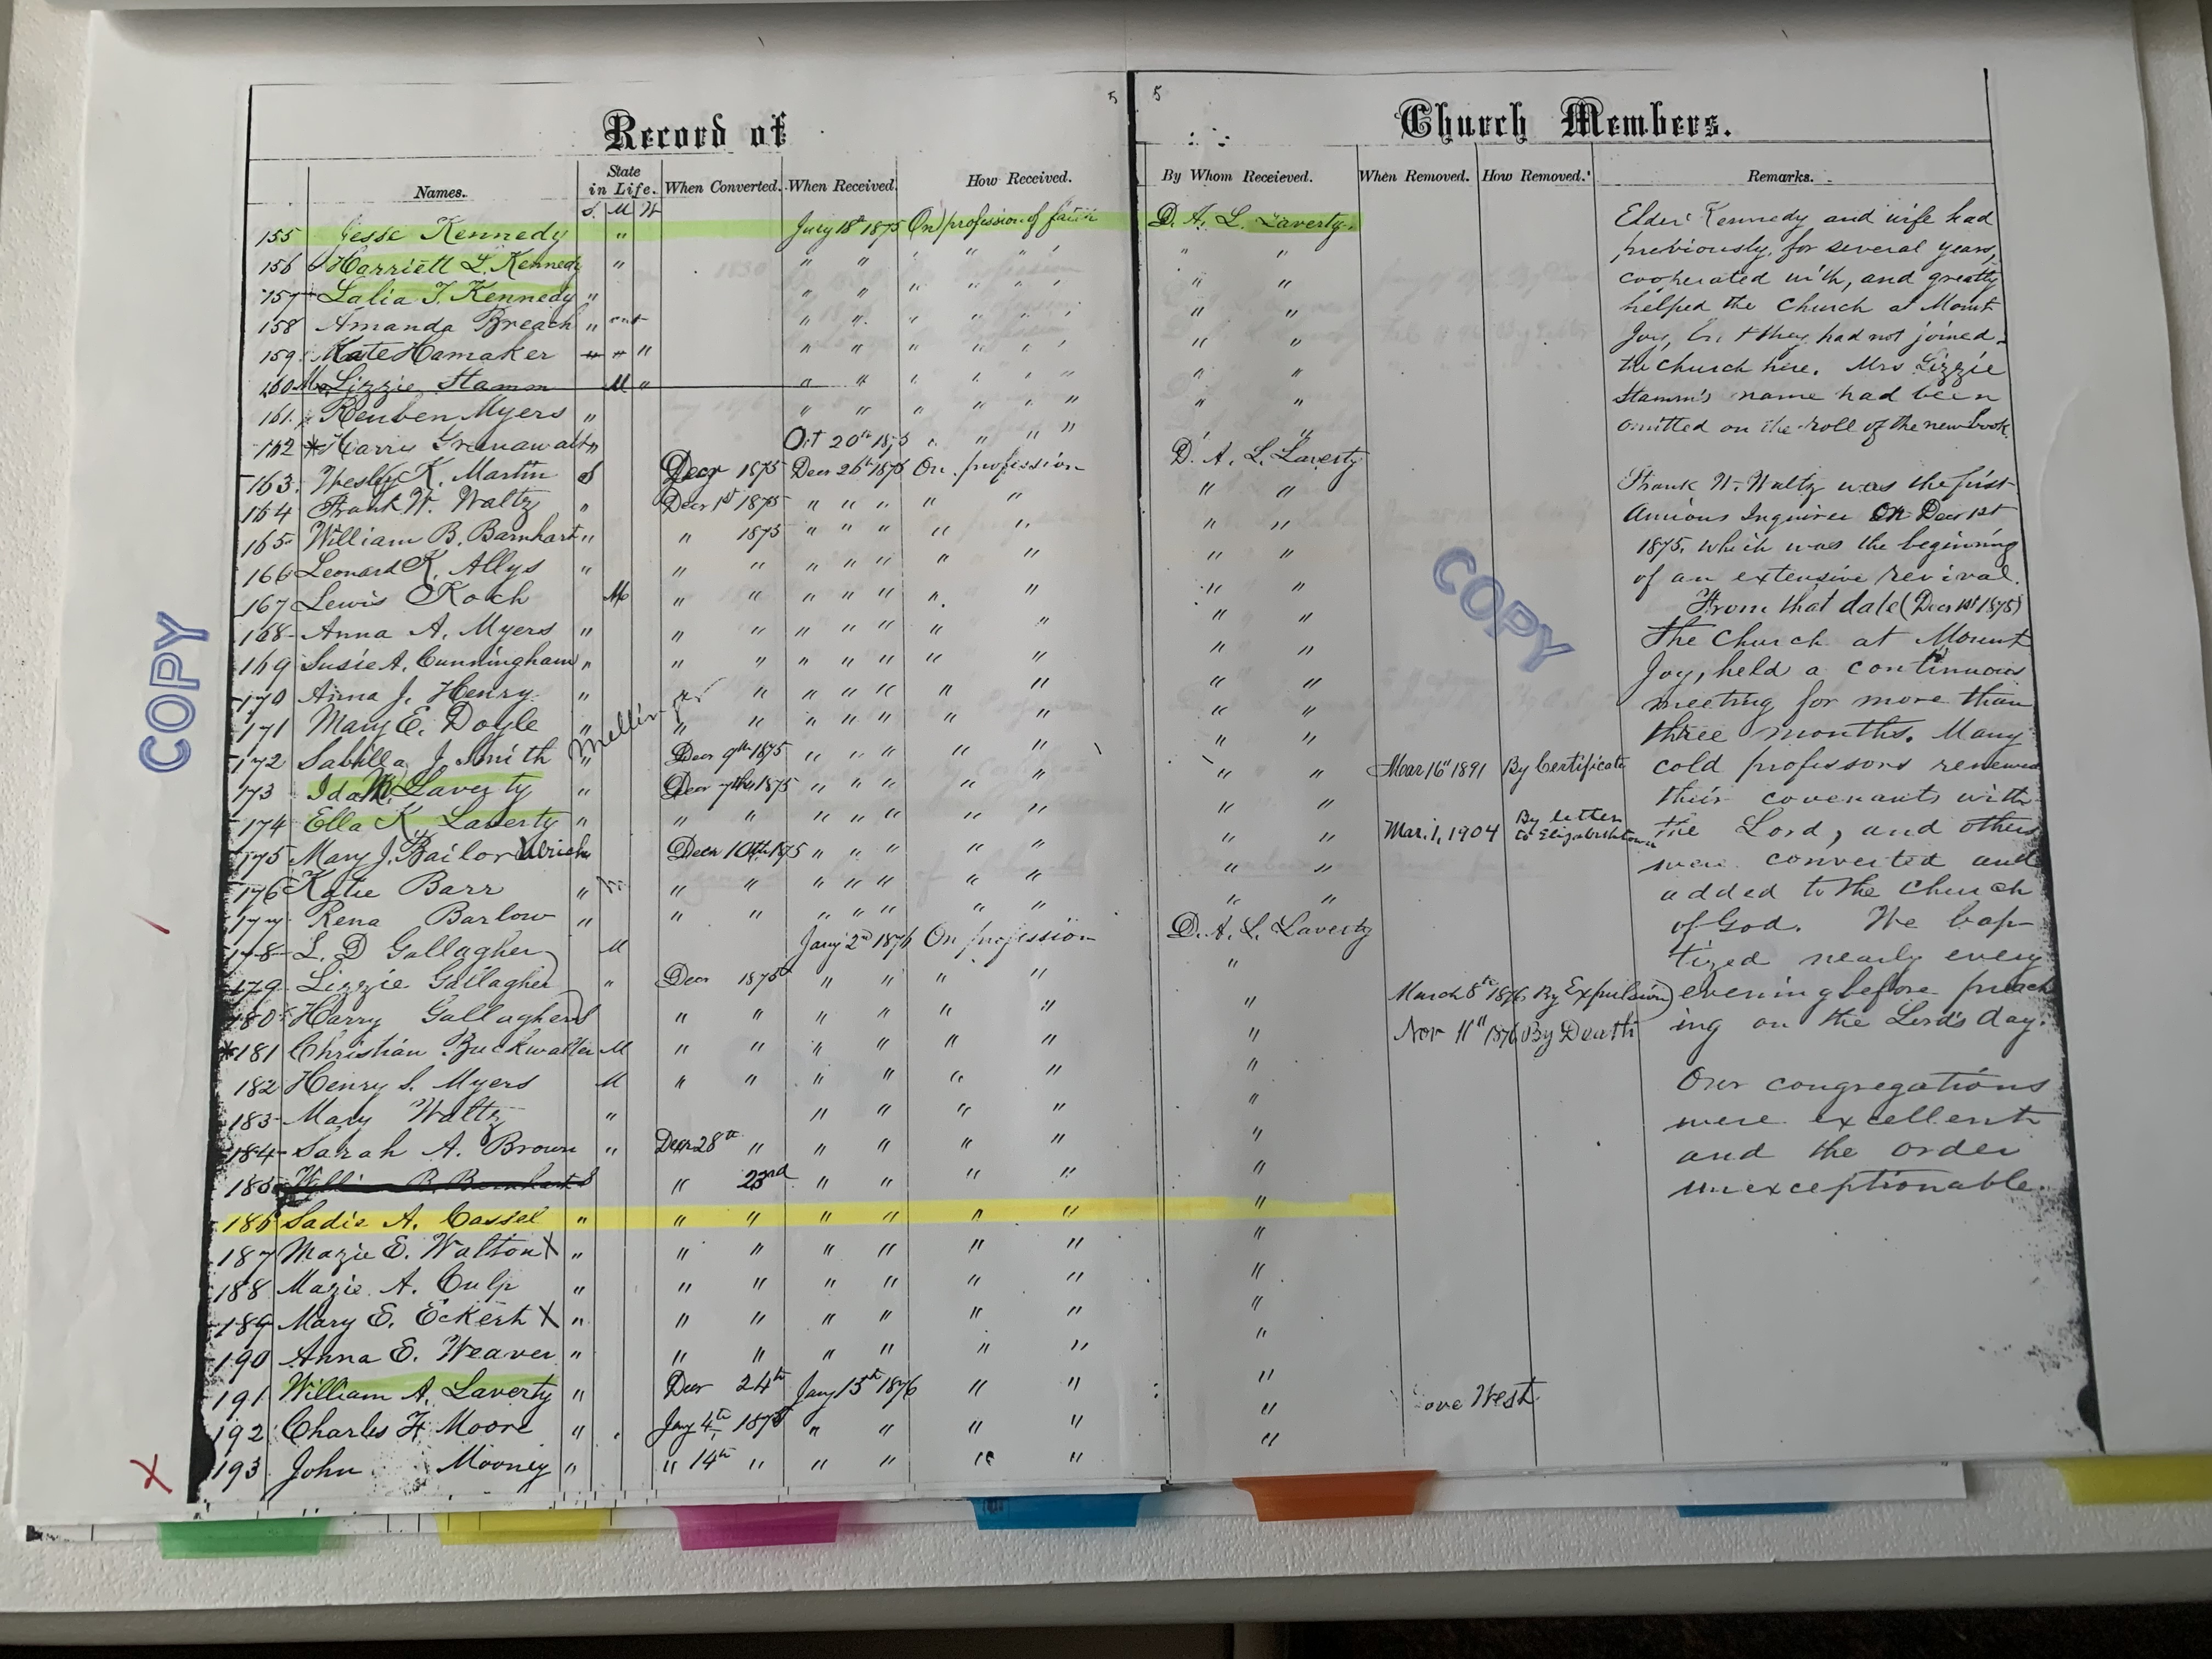 5 5
Record of Church Members.
Names. State in Life. When Converted. When Received. How Received. By Whom Receieved. When Removed. How Removed. Remarks.
S. M W
155 Jesse Kennedy " Jany 18th 1875 On profession of faith D. A. L. Laverty.
156 Harriett L. Kennedy " " " " " " " " "
157 Lalia T. Kennedy " " " " " " " " "
158 Amanda Breach " " " " " " " " "
159. Kate Hamaker " " " " " " " " " " "
160 Mrs Lizzie Stamm M " " " " " " " " "
161. Reuben Myers " " " " " " " " "
162 * Harris Grenawalt " Oct 20th 1875 " " " " " "
163. Wesley K. Martin S Decr 1875 Decr 26th 1875 On profession D. A. L. Laverty
164 Frank W. Waltz " Decr 1st 1875 " " " " " " "
165 William B. Barnhart " " 1875 " " " " " " "
166 Leonard K. Allys " " " " " " " " " "
167 Lewis Koch M " " " " " " " " "
168 Anna A. Myers " " " " " " " " " "
169 Susie A. Cunningham " " " " " " " " " "
170 Anna J. Henry " " " " " " " " "
171 Mary E. Doyle " Mellinger " " " " " " " " "
172 Sabilla J. Smith " Decr 9th 1875 " " " " " " "
173 Ida M. Laverty " Decr 7th 1875 " " " " " " " Mar 16th 1891 By Certificate
174 Ella K. Laverty " " " " " " " " " "
175 Mary J. Bailor Ulrich Decr 10th 1875 " " " " " " " Mar. 1, 1904 By letter to Elizabethtown
176 Katie Barr " " " " " " " " " "
177 Rena Barlow " " " " " " " " " "
178 L. D Gallagher M Jany 2nd 1876 On profession D. A. L. Laverty
179 Lizzie Gallagher " Decr 1875 " " " " "
180 Harry Gallagher S " " " " " " " March 8th 1876 By Expulsion
*181 Christian Buckwalter M " " " " " " " Nov 11th 1876 By Death
182 Henry S. Myers M " " " " " " "
183 Mary Waltz " " " " " "
184 Sarah A. Brown " Decr 28th " " " " " "
185 William B. Barnhart S " 23rd " " " " "
186 Sadie A. Cassel " " " " " " " "
187 Mazie E. Walton X " " " " " " " "
188 Mazie A. Culp " " " " " " " "
189 Mary E. Eckert X " " " " " " " "
190 Anna E. Weaver " " " " " " " "
191 William A. Laverty " Decr 24th Jany 15th 1876 " " "
192 Charles F. Moore " Jany 4th 1875 " " " " " ove West
193 John Mooney " " 14th " " " " " "
X
Elder Kennedy and wife had
previously, for several years,
cooperated with, and greatly
helped the Church at Mount
Joy, but they had not joined
the church here. Mrs Lizzie
Stamm's name had been
omitted on the roll of the new book.
Frank W. Waltz was the first
Anxious Inquirer on Decr 1st
1875, which was the beginning
of an extensive revival.
From that date (Decr 1st 1875)
the Church at Mount
Joy, held a continuous
meeting for more than
three months. Many
cold professors renewed
their covenants with
the Lord, and others
were converted and
added to the Church
of God. We bap-
tized nearly every
evening before preach
ing on the Lord's day.
Our congregations
were excellent
and the order
unexceptionable.
COPY
COPY